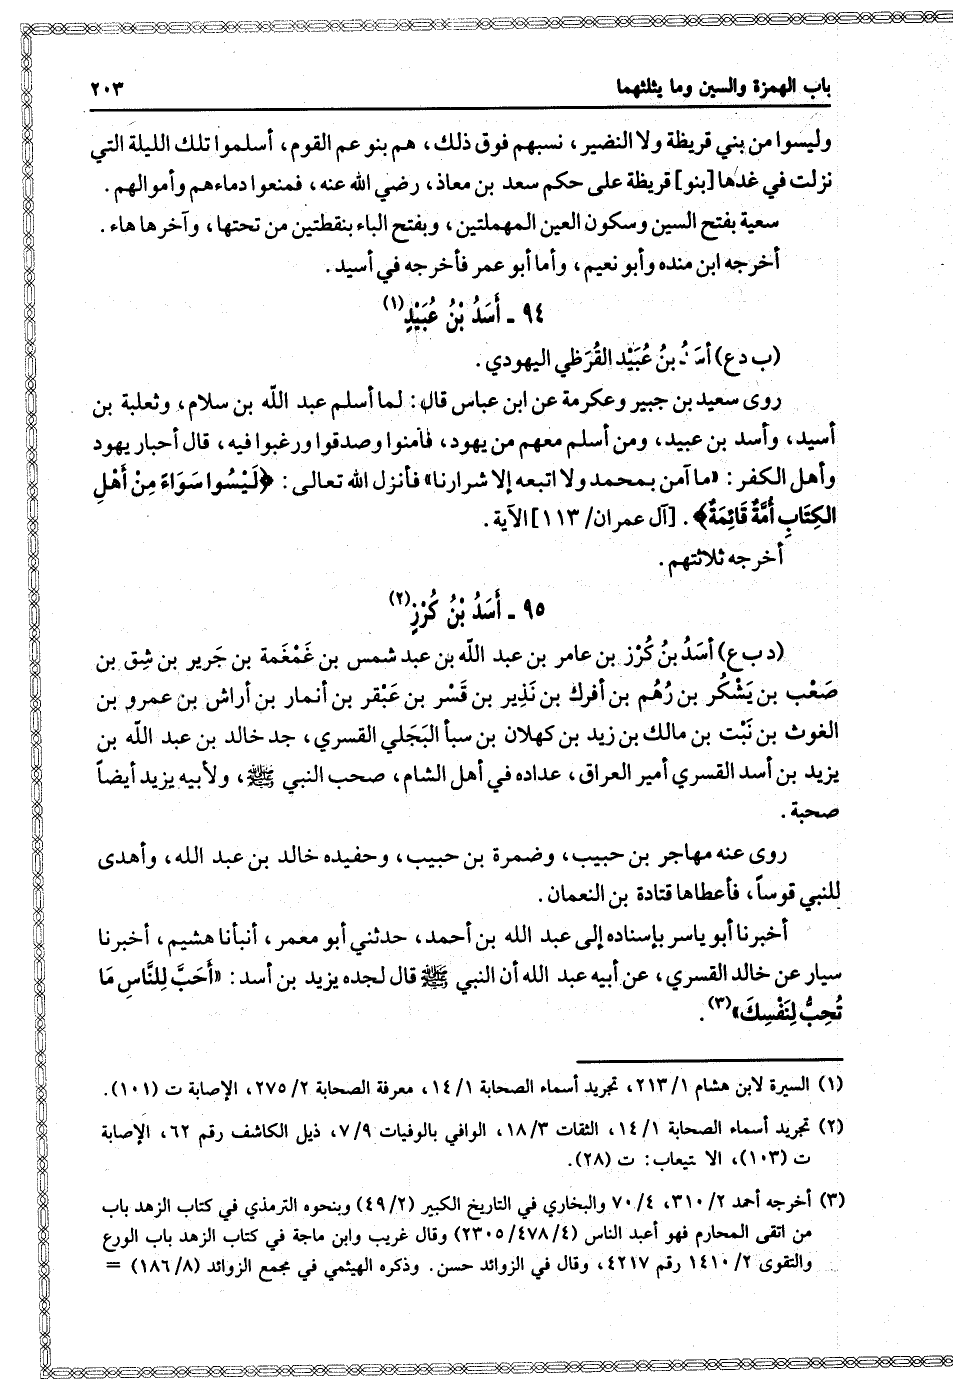 باب الهمزة والسين وما يثلثهما ٢٠٣
وليسوا من بني قريظة ولا النضير، نسبهم فوق ذلك، هم بنو عم القوم، أسلموا تلك الليلة التي
نزلت في غدها [بنو] قريظة على حكم سعد بن معاذ، رضي الله عنه، فمنعوا دماءهم وأموالهم.
سعية بفتح السين وسكون العين المهملتين، وبفتح الياء بنقطتين من تحتها، وآخرها هاء.
أخرجه ابن منده وأبو نعيم، وأما أبو عمر فأخرجه في أسيد.
٩٤ - أَسَدُ بْنُ عُبَيْدٍ(١)
(ب د ع) أسَدُ بنُ عُبَيْد القُرَظي اليهودي.
روى سعيد بن جبير وعكرمة عن ابن عباس قال: لما أسلم عبد اللّه بن سلام، وثعلبة بن
أسيد، وأسد بن عبيد، ومن أسلم معهم من يهود، فآمنوا وصدقوا ورغبوا فيه، قال أحبار يهود
وأهل الكفر: «ما آمن بمحمد ولا اتبعه إلا شرارنا» فأنزل الله تعالى: ﴿لَيْسُوا سَوَاءً مِنْ أَهْلِ
الكِتَابِ أُمَّةٌ قَائِمَةٌ﴾. [آل عمران/ ١١٣] الآية.
أخرجه ثلاثتهم.
٩٥ - أَسَدُ بْنُ كُرْزٍ(٢)
(د ب ع) أسَدُ بنُ كُرْز بن عامر بن عبد اللّه بن عبد شمس بن غَمْغَمة بن جَرير بن شِق بن
صَعْب بن يَشْكُر بن رُهْم بن أفرك بن نَذِير بن قَسْر بن عَبْقر بن أنمار بن أراش بن عمرو بن
الغوث بن نَبْت بن مالك بن زيد بن كهلان بن سبأ البَجَلي القسري، جد خالد بن عبد اللّه بن
يزيد بن أسد القسري أمير العراق، عداده في أهل الشام، صحب النبي ﷺ، ولأبيه يزيد أيضاً
صحبة.
روى عنه مهاجر بن حبيب، وضمرة بن حبيب، وحفيده خالد بن عبد الله، وأهدى
للنبي قوساً، فأعطاها قتادة بن النعمان.
أخبرنا أبو ياسر بإسناده إلى عبد الله بن أحمد، حدثني أبو معمر، أنبأنا هشيم، أخبرنا
سيار عن خالد القسري، عن أبيه عبد الله أن النبي ﷺ قال لجده يزيد بن أسد: «أَحَبَّ لِلنَّاسِ مَا
تُحِبُّ لِنَفْسِكَ»(٣).
(١) السيرة لابن هشام ٢١٣/١، تجريد أسماء الصحابة ١٤/١، معرفة الصحابة ٢٧٥/٢، الإصابة ت (١٠١).
(٢) تجريد أسماء الصحابة ١٤/١، الثقات ١٨/٣، الوافي بالوفيات ٧/٩، ذيل الكاشف رقم ٦٢، الإصابة
ت (١٠٣)، الا تيعاب: ت (٢٨).
(٣) أخرجه أحمد ٣١٠/٢، ٧٠/٤ والبخاري في التاريخ الكبير (٤٩/٢) وبنحوه الترمذي في كتاب الزهد باب
من اتقى المحارم فهو أعبد الناس (٤٧٨/٤/ ٢٣٠٥) وقال غريب وابن ماجة في كتاب الزهد باب الورع
والتقوى ١٤١٠/٢ رقم ٤٢١٧، وقال في الزوائد حسن. وذكره الهيثمي في مجمع الزوائد (١٨٦/٨) =